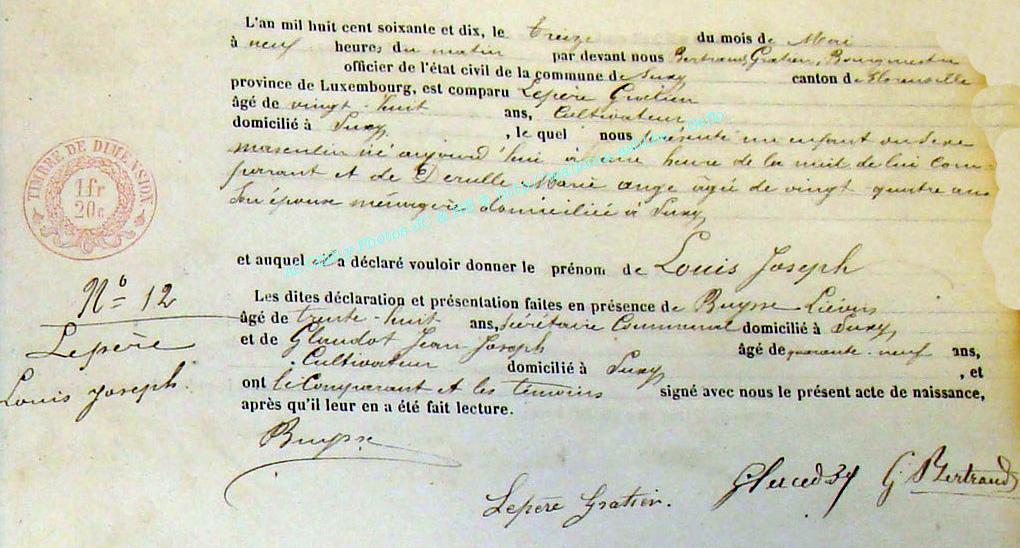 L'an mil huit cent soixante et dix, le treize du mois de Mai
à neuf heures du matin par devant nous Bertrand, Gratien, Bourgmestre
officier de l'état civil de la commune de Suxy canton de Florenville
province de Luxembourg, est comparu Lepère Gratien
âgé de vingt-huit ans, Cultivateur
domicilié à Suxy , le quel nous présenté un enfant du sexe
masculin né aujourd'hui à une heure de la nuit de lui com-
parant et de Marie ange âgée de vingt-quatre ans
Son épouse ménagère domiciliée à Suxy
TIMBRE DE DIMENSION
1 fr
20 c
et auquel il a déclaré vouloir donner le prénom de Louis Joseph
No 12
Lepère
Louis Joseph.
Les dites déclaration et présentation faites en présence de Buysse Liévin
âgé de trente-huit ans, Sécrétaire Communal domicilié à Suxy,
et de Glaudot Jean Joseph âgé de quarante-neuf ans,
Cultivateur domicilié à Suxy , et
ont le Comparant et les témoins signé avec nous le présent acte de naissance,
après qu'il leur en a été fait lecture.
Buysse
Lepère Gratien. G Bertrand